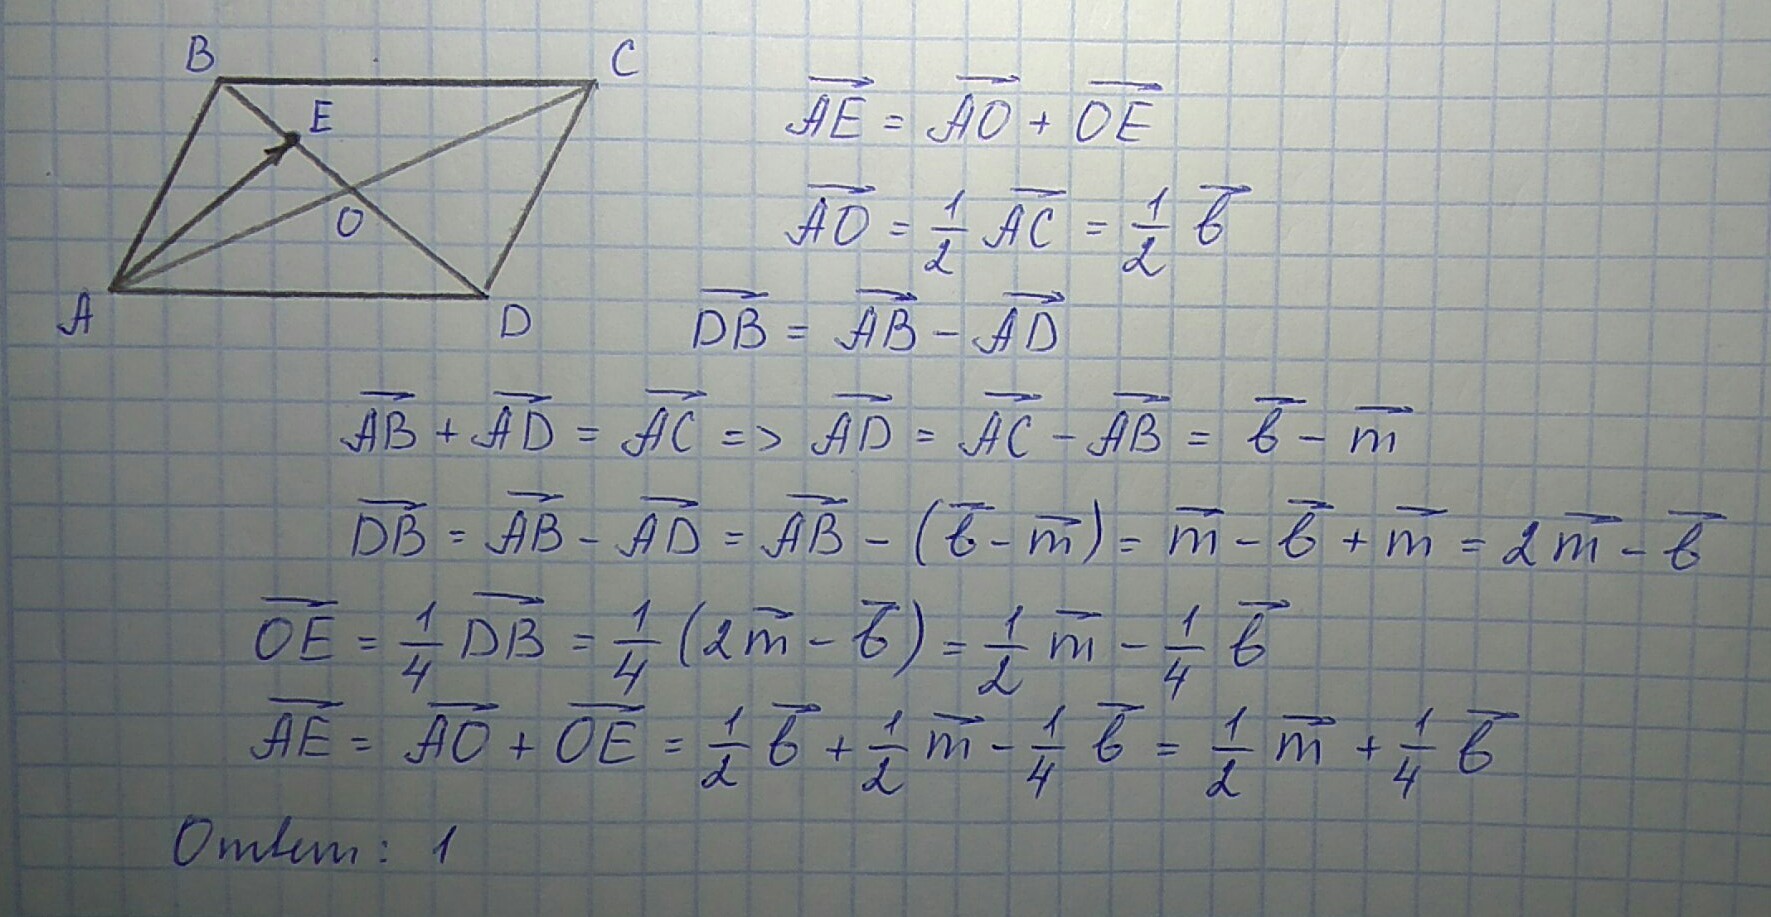 B C
E
O
A D
AE = AO + OE
AO = 1/2 AC = 1/2 в
DB = AB - AD
AB + AD = AC => AD = AC - AB = в - m
DB = AB - AD = AB - (в - m) = m - в + m = 2m - в
OE = 1/4 DB = 1/4 (2m - в) = 1/2 m - 1/4 в
AE = AO + OE = 1/2 в + 1/2 m - 1/4 в = 1/2 m + 1/4 в
Ответ: 1